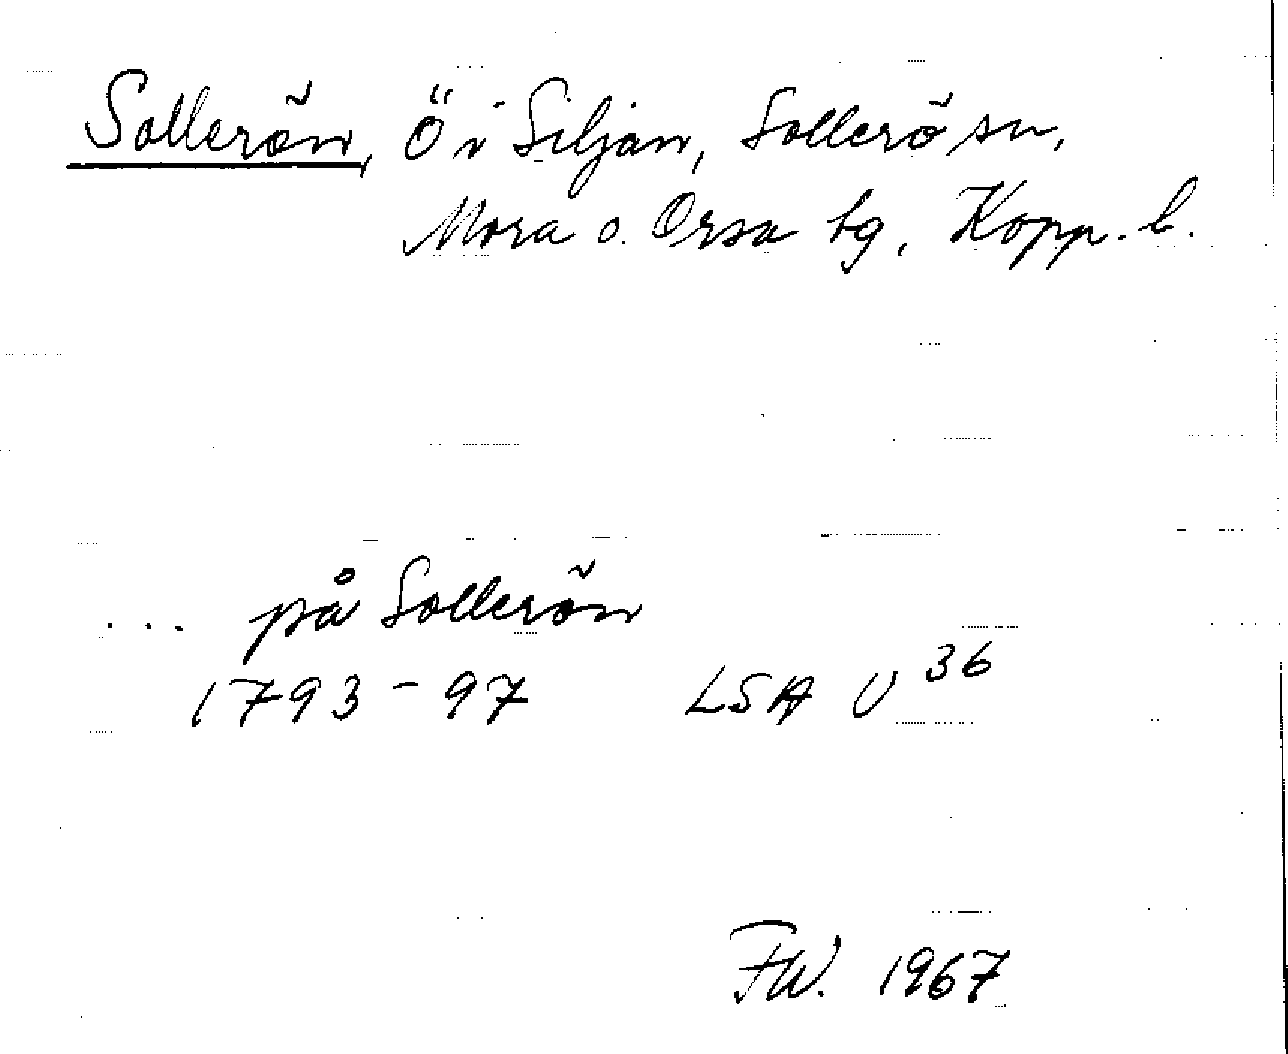 Sollerön, Ö i Siljan, Sollerö sn,
Mora o. Orsa tg, Kopp. l.
... på Sollerön
1793-97 LSA U 36
FW. 1967